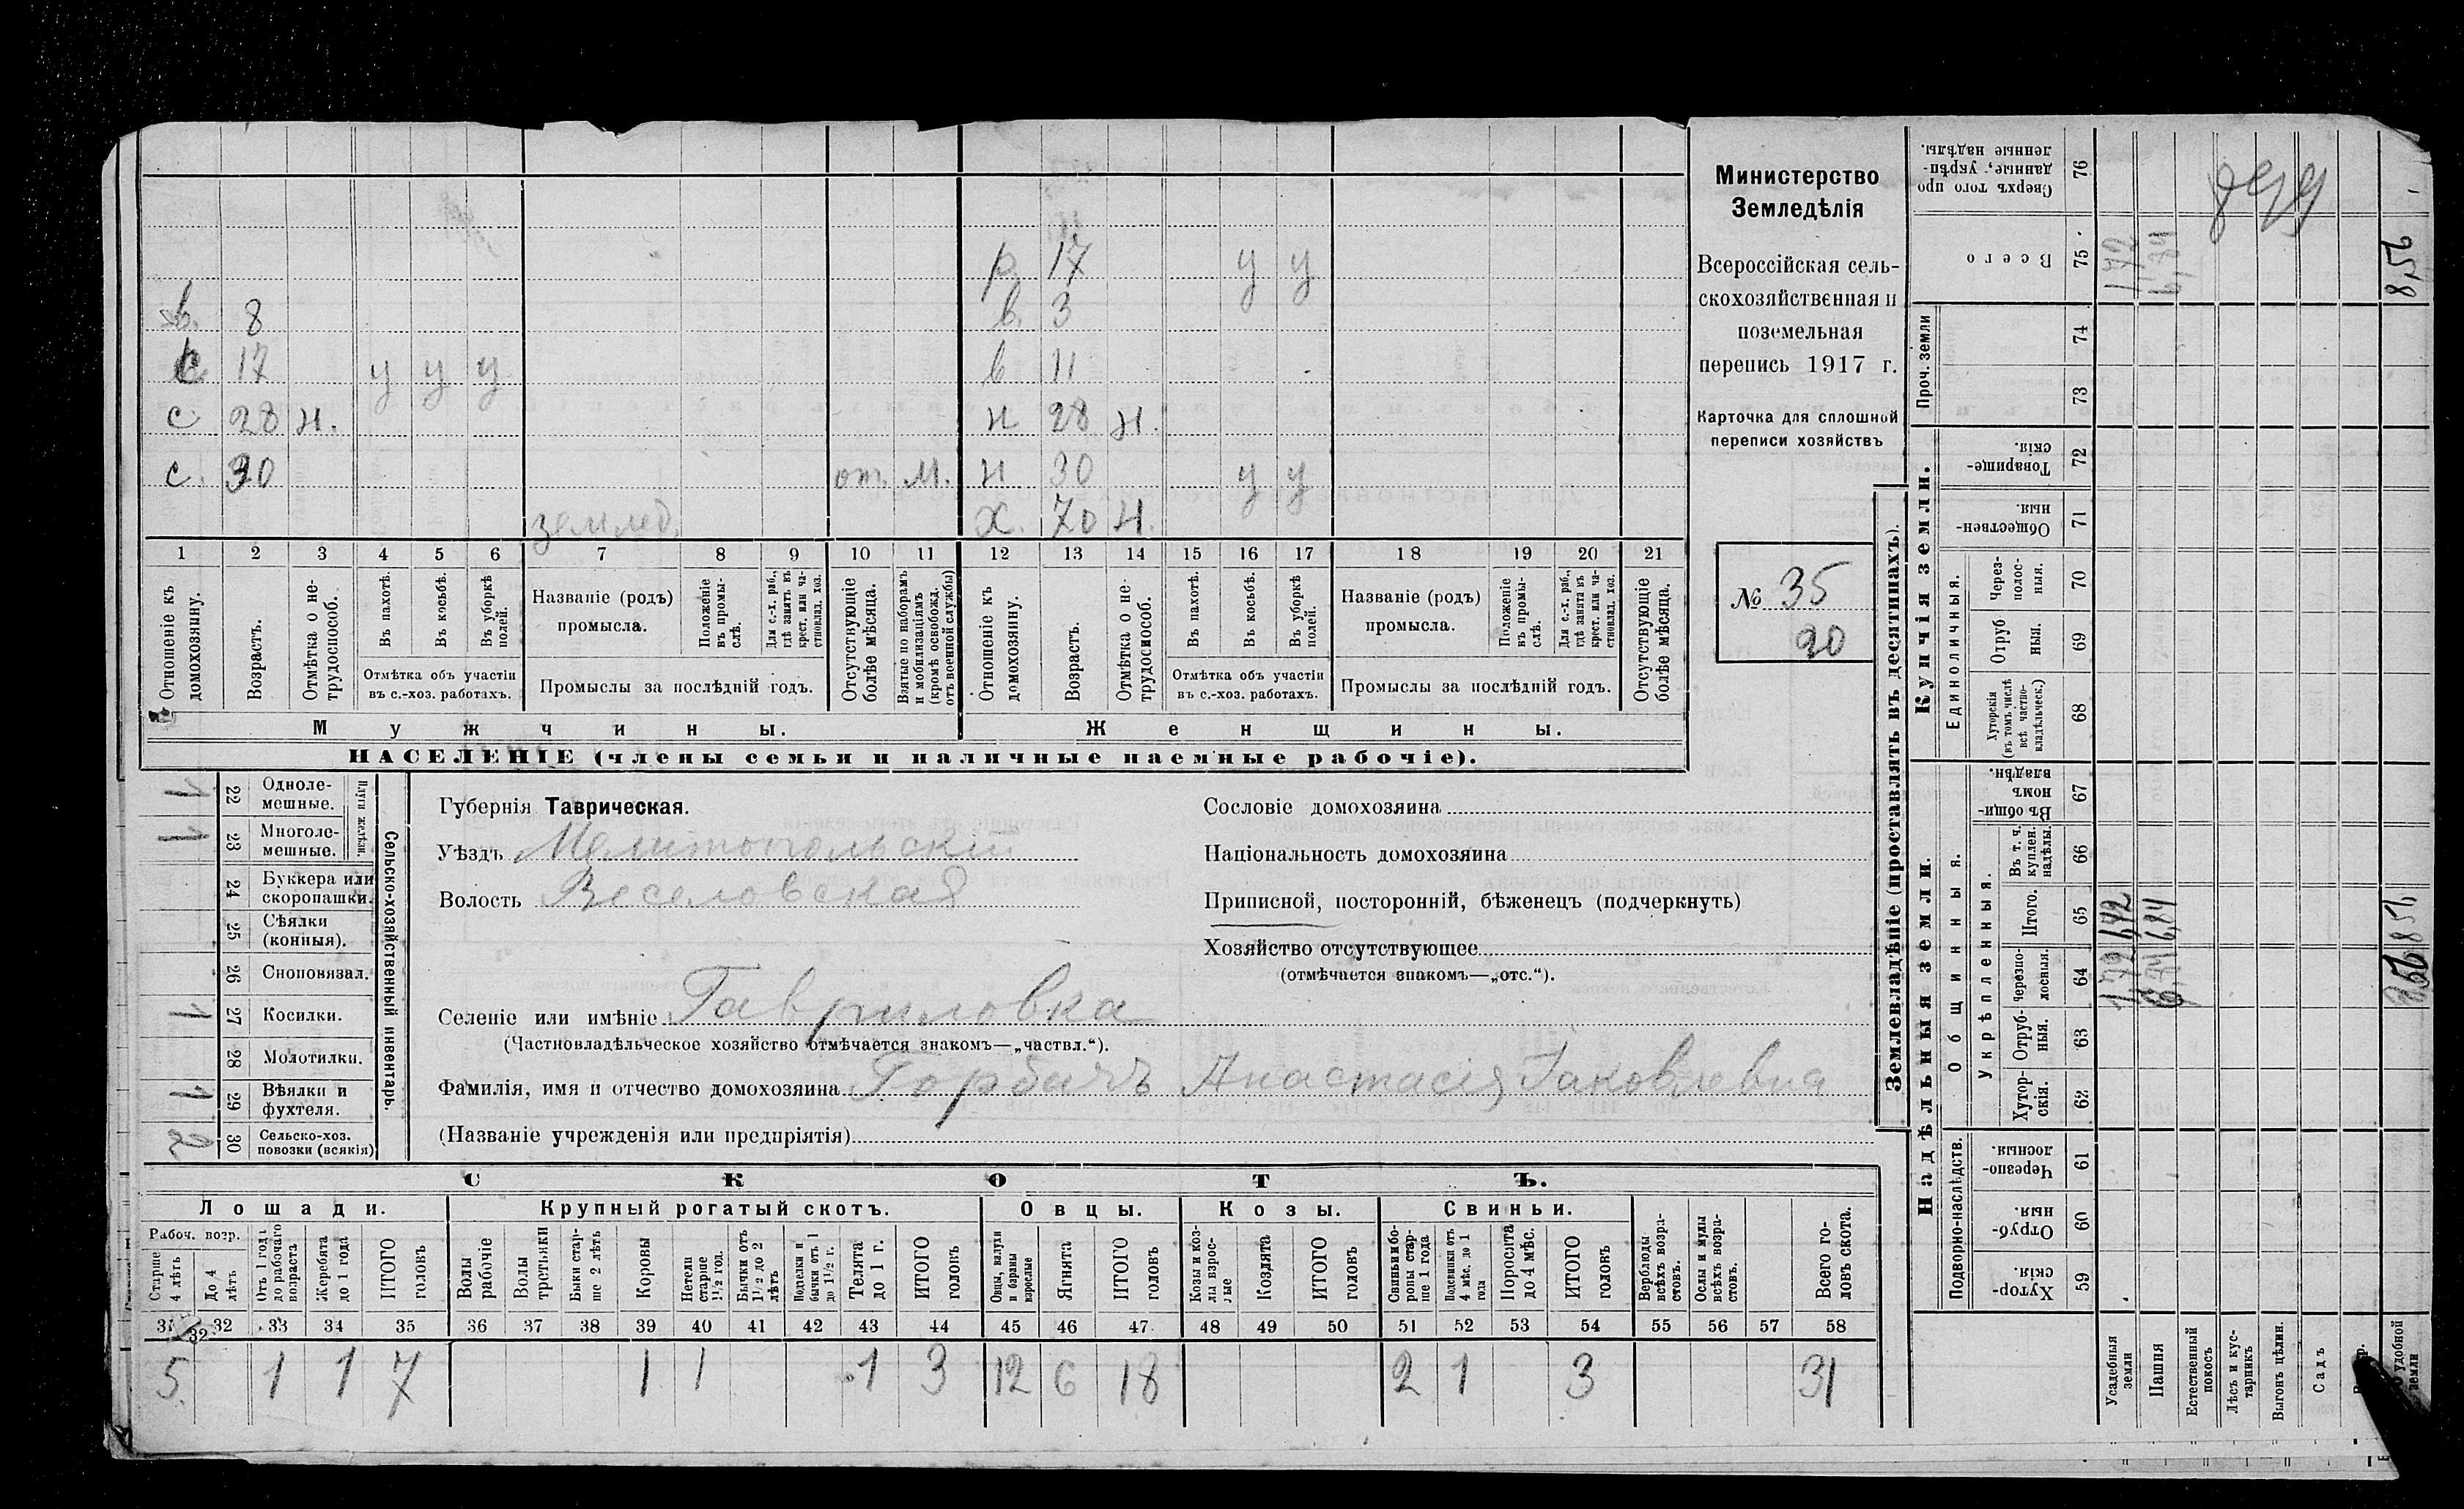 р. 17 у у
в. 8 в. 3
17 у у у в 11
с 28 н. н 28 н.
с. 30 от. м. н 30 у у
землед. х. 70 н.
1 2 3 4 5 6 7 8 9 10 11 12 13 14 15 16 17 18 19 20 21
Отношеніе къ домохозяину.
Возрастъ.
Отмѣтка о нетрудоспособ.
Въ пахотѣ.
Въ косьбѣ.
Въ уборкѣ полей.
Отмѣтка объ участіи
въ с.-хоз. работахъ.
Названіе (родъ)
промысла.
Положеніе въ промыслѣ.
Для с.-х. раб., гдѣ занятъ въ крест. или частновлад. хоз.
Промыслы за послѣдній годъ.
Отсутствующіе болѣе мѣсяца.
Взятые по наборамъ и мобилизаціямъ (кромѣ освобожд. отъ военной службы)
Отношеніе къ домохозяину.
Возрастъ.
Отмѣтка о нетрудоспособ.
Въ пахотѣ.
Въ косьбѣ.
Въ уборкѣ полей.
Отмѣтка объ участіи
въ с.-хоз. работахъ.
Названіе (родъ)
промысла.
Положеніе въ промыслѣ.
Для с.-х. раб., гдѣ занята въ крест. или частновлад. хоз.
Промыслы за послѣдній годъ.
Отсутствующіе болѣе мѣсяца.
Мужчины. Женщины.
НАСЕЛЕНІЕ (члены семьи и наличные наемные рабочіе).
Министерство
Земледѣлія
Всероссійская сель-
скохозяйственная и
поземельная
перепись 1917 г.
Карточка для сплошной
переписи хозяйствъ
№ 35
20
1 22 Одноле-
мешные.
1 23 Многоле-
мешные.
Плуги желѣзн.
24 Буккера или
скоропашки.
25 Сѣялки
(конныя).
26 Сноповязал.
1 27 Косилки.
28 Молотилки.
1 29 Вѣялки и
фухтеля.
2 30 Сельско-хоз.
повозки (всякія)
Сельско-хозяйственный инвентарь.
Губернія Таврическая.
Уѣздъ Мелитопольскій
Волость Веселовская
Сословіе домохозяина
Національность домохозяина
Приписной, посторонній, бѣженецъ (подчеркнуть)
Хозяйство отсутствующее
(отмѣчается знакомъ—„отс.“).
Селеніе или имѣніе Гавриловка
(Частновладѣльческое хозяйство отмѣчается знакомъ—„частвл.“).
Фамилія, имя и отчество домохозяина Горбачъ Анастасія Іаковлевна
(Названіе учрежденія или предпріятія)
СКОТЪ.
Лошади. Крупный рогатый скотъ. Овцы. Козы. Свиньи.
Рабоч. возр.
Старше 4 лѣтъ
До 4 лѣтъ
Отъ 1 года до рабочаго возраста
Жеребята до 1 года
ИТОГО головъ
Волы рабочіе
Волы третьяки
Быки старше 2 лѣтъ
Коровы
Нетели старше 1½ год.
Бычки отъ 1½ до 2 лѣтъ
Подтелки и бычки отъ 1 до 1½ г.
Телята до 1 г.
ИТОГО головъ
Овцы, валухи и бараны взрослые
Ягнята
ИТОГО головъ
Козы и козлы взрослые
Козлята
ИТОГО головъ
Свиньи и боровы старше 1 года
Подсвинки отъ 4 мѣс. до 1 года
Поросята до 4 мѣс.
ИТОГО головъ
Верблюды всѣхъ возрастовъ.
Ослы и мулы всѣхъ возрастовъ.
Всего головъ скота.
31 32 32 33 34 35 36 37 38 39 40 41 42 43 44 45 46 47 48 49 50 51 52 53 54 55 56 57 58
5 1 1 7 1 1 1 3 12 6 18 2 1 3 31
Землевладѣніе (проставлять въ десятинахъ).
Купчія земли.
Надѣльныя земли.
Сверхъ того проданные, укрѣпленные надѣлы. 76
Всего 75 8,56
Проч. земли 74 73
Товарищескія. 72
Общественныя. 71
Единоличныя.
Черезполосныя. 70
Отрубныя. 69
Хуторскія (въ томъ числѣ всѣ частновладѣльческ.) 68
Общинныя.
Въ общинномъ владѣн. 67
Укрѣпленныя.
Въ т. ч. куплен. надѣлы. 66
Итого. 65
Черезполосныя. 64
Отрубныя. 63
Хуторскія. 62
Подворно-наслѣдств.
Черезполосныя. 61
Отрубныя. 60
Хуторскія. 59
Усадебныя земли
Пашня
Естественный покосъ
Лѣсъ и кустарникъ
Выгонъ цѣлин.
Садъ
удобной земли